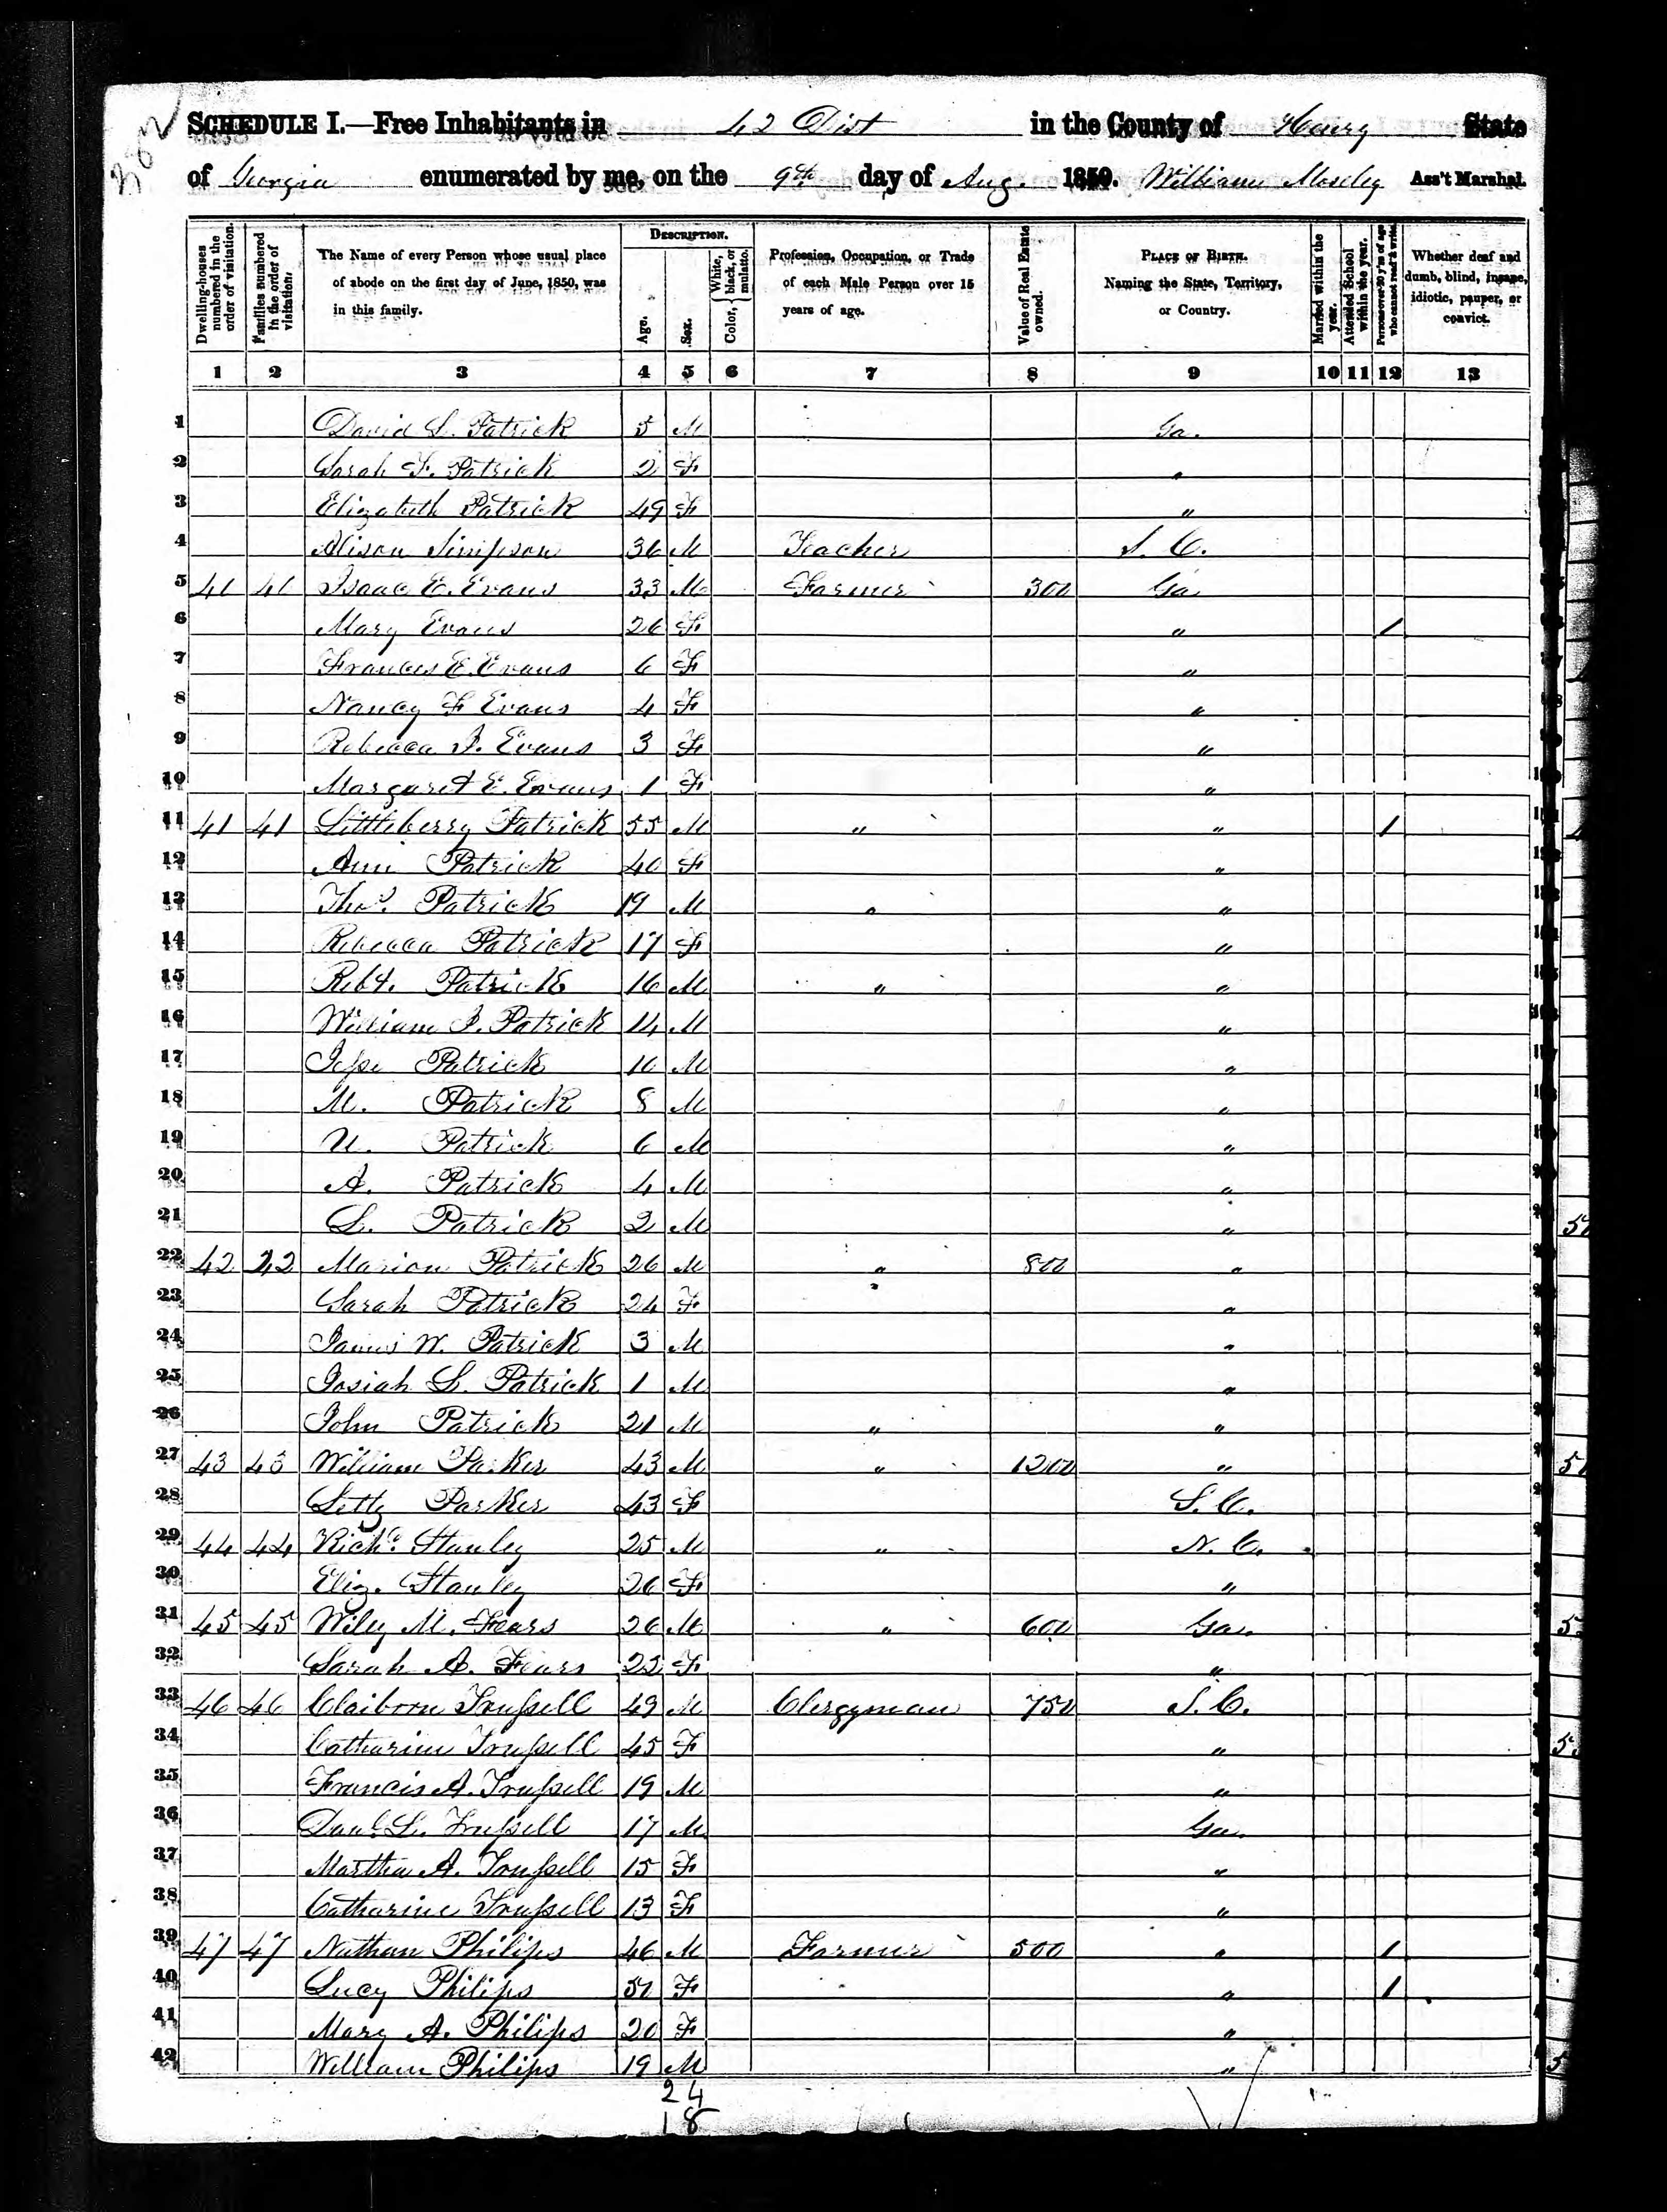 302
SCHEDULE I.—Free Inhabitants in 42 Dist in the County of Henry State
of Georgia enumerated by me, on the 9th day of Aug. 1850. William Moseley Ass't Marshal.
Dwelling-houses numbered in the order of visitation.
Families numbered in the order of visitation.
The Name of every Person whose usual place of abode on the first day of June, 1850, was in this family.
DESCRIPTION.
Age.
Sex.
Color, { White, black, or mulatto.
Profession, Occupation, or Trade of each Male Person over 15 years of age.
Value of Real Estate owned.
PLACE OF BIRTH. Naming the State, Territory, or Country.
Married within the year.
Attended School within the year.
Persons over 20 y'rs of age who cannot read & write.
Whether deaf and dumb, blind, insane, idiotic, pauper, or convict.
1 2 3 4 5 6 7 8 9 10 11 12 13
1 David L. Patrick 5 M Ga.
2 Sarah F. Patrick 2 F "
3 Elizabeth Patrick 49 F "
4 Alison Simpson 36 M Teacher S. C.
5 41 41 Isaac E. Evans 33 M Farmer 300 Ga
6 Mary Evans 26 F " /
7 Frances E. Evans 6 F "
8 Nancy F Evans 4 F "
9 Rebecca J. Evans 3 F "
10 Margaret E. Evans 1 F "
11 41 41 Littleberry Patrick 55 M " " /
12 Ann Patrick 40 F "
13 Thos. Patrick 19 M " "
14 Rebecca Patrick 17 F "
15 Robt. Patrick 16 M " "
16 William J. Patrick 14 M "
17 Jesse Patrick 10 M "
18 M. Patrick 8 M "
19 N. Patrick 6 M "
20 A. Patrick 4 M "
21 L. Patrick 2 M "
22 42 42 Marion Patrick 26 M " 800 "
23 Sarah Patrick 24 F "
24 James W. Patrick 3 M "
25 Josiah L. Patrick 1 M "
26 John Patrick 21 M " "
27 43 43 William Parker 43 M " 1200 "
28 Letty Parker 43 F S. C.
29 44 44 Richd. Stanley 25 M " N. C.
30 Eliz. Stanley 26 F "
31 45 45 Wiley M. Fears 26 M " 600 Ga.
32 Sarah A. Fears 22 F "
33 46 46 Claiborn Trussell 49 M Clergyman 750 S. C.
34 Catharine Trussell 45 F "
35 Francis A. Trussell 19 M "
36 Danl. L. Trussell 17 M Ga.
37 Martha A. Trussell 15 F "
38 Catharine Trussell 13 F "
39 47 47 Nathan Philips 46 M Farmer 500 " /
40 Lucy Philips 51 F " /
41 Mary A. Philips 20 F "
42 William Philips 19 M "
24
18